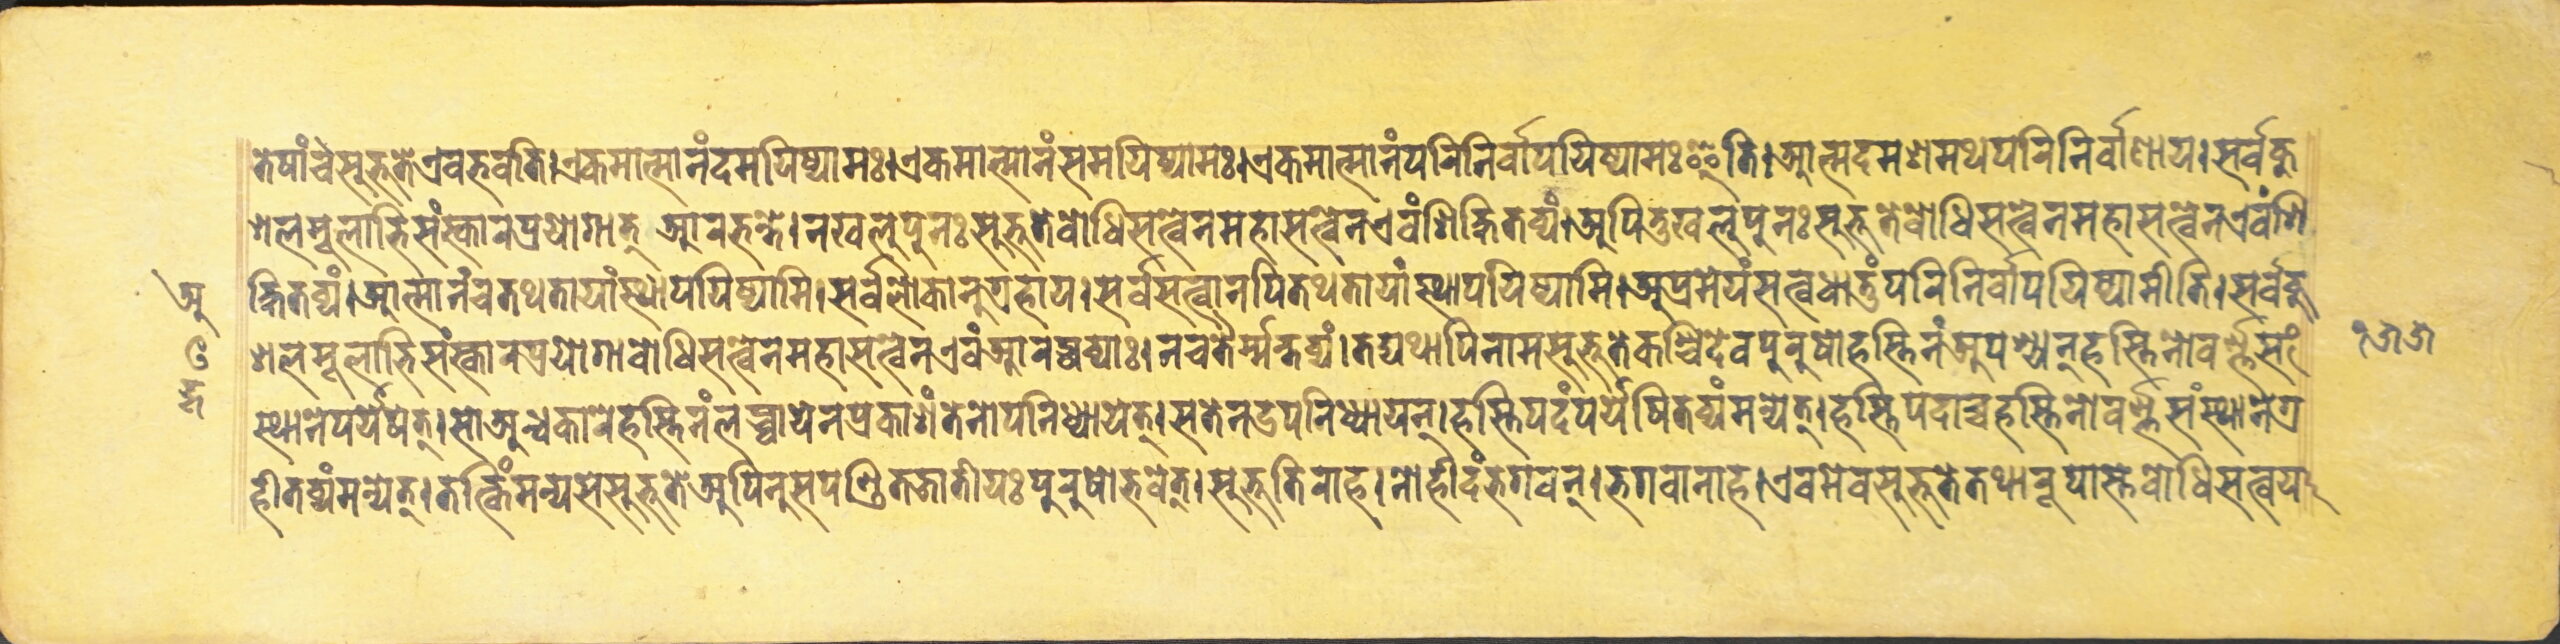 तेषांचसुभूतेएवभवति।एकमात्मानंदमयिष्यामः।एकमात्मानंसमयिष्यामः।एकमात्मानंपरिनिर्वापयिष्यामःइति।आत्मदमशमथपरिनिर्वाणाय।सर्वकु
शलमूलाभिसंस्कारप्रयोगात् आरभन्ते।नखलुपुनःसुभूतेबोधिसत्त्वेनमहासत्त्वेनएवंशिक्षितव्यं।अपितुखलुपुनःसुभूतेबोधिसत्त्वेनमहासत्त्वेनएवंशि
क्षितव्यं।आत्मानंचतथतायांस्थापयिष्यामि।सर्वलोकानुग्रहाय।सर्वसत्त्वानपितथतायांस्थापयिष्यामि।अप्रमेयंसत्त्वधातुंपरिनिर्वापयिष्यामीति।सर्वकु
शलमूलाभिसंस्कारप्रयोगाबोधिसत्त्वेनमहासत्त्वेनएवंआरब्धव्याः।नचतैर्म्मन्तव्यं।तद्यथापिनामसुभूतेकश्चिदेवपुरुषोहस्तिनंअपश्यन्हस्तिनोवर्ण्णसं
स्थानेपर्येषेत्।सोअन्धकारेहस्तिनंलब्ध्वायेनप्रकाशंतेनोपनिध्यायेत्।सतेनउपनिध्यायन्।हस्तिपदंपर्येषितव्यंमन्येत्।हस्तिपदाच्चहस्तिनोवर्ण्णसंस्थानेग्र
हीतव्यंमन्येत्।तत्किंमन्यसेसुभूतेअपिनुसपण्डितजातीयःपुरुषोभवेत्।सुभूतिराह।नोहीदंभगवन्।भगवानाह।एवमेवसुभूतेतथारूपास्तेबोधिसत्त्वय